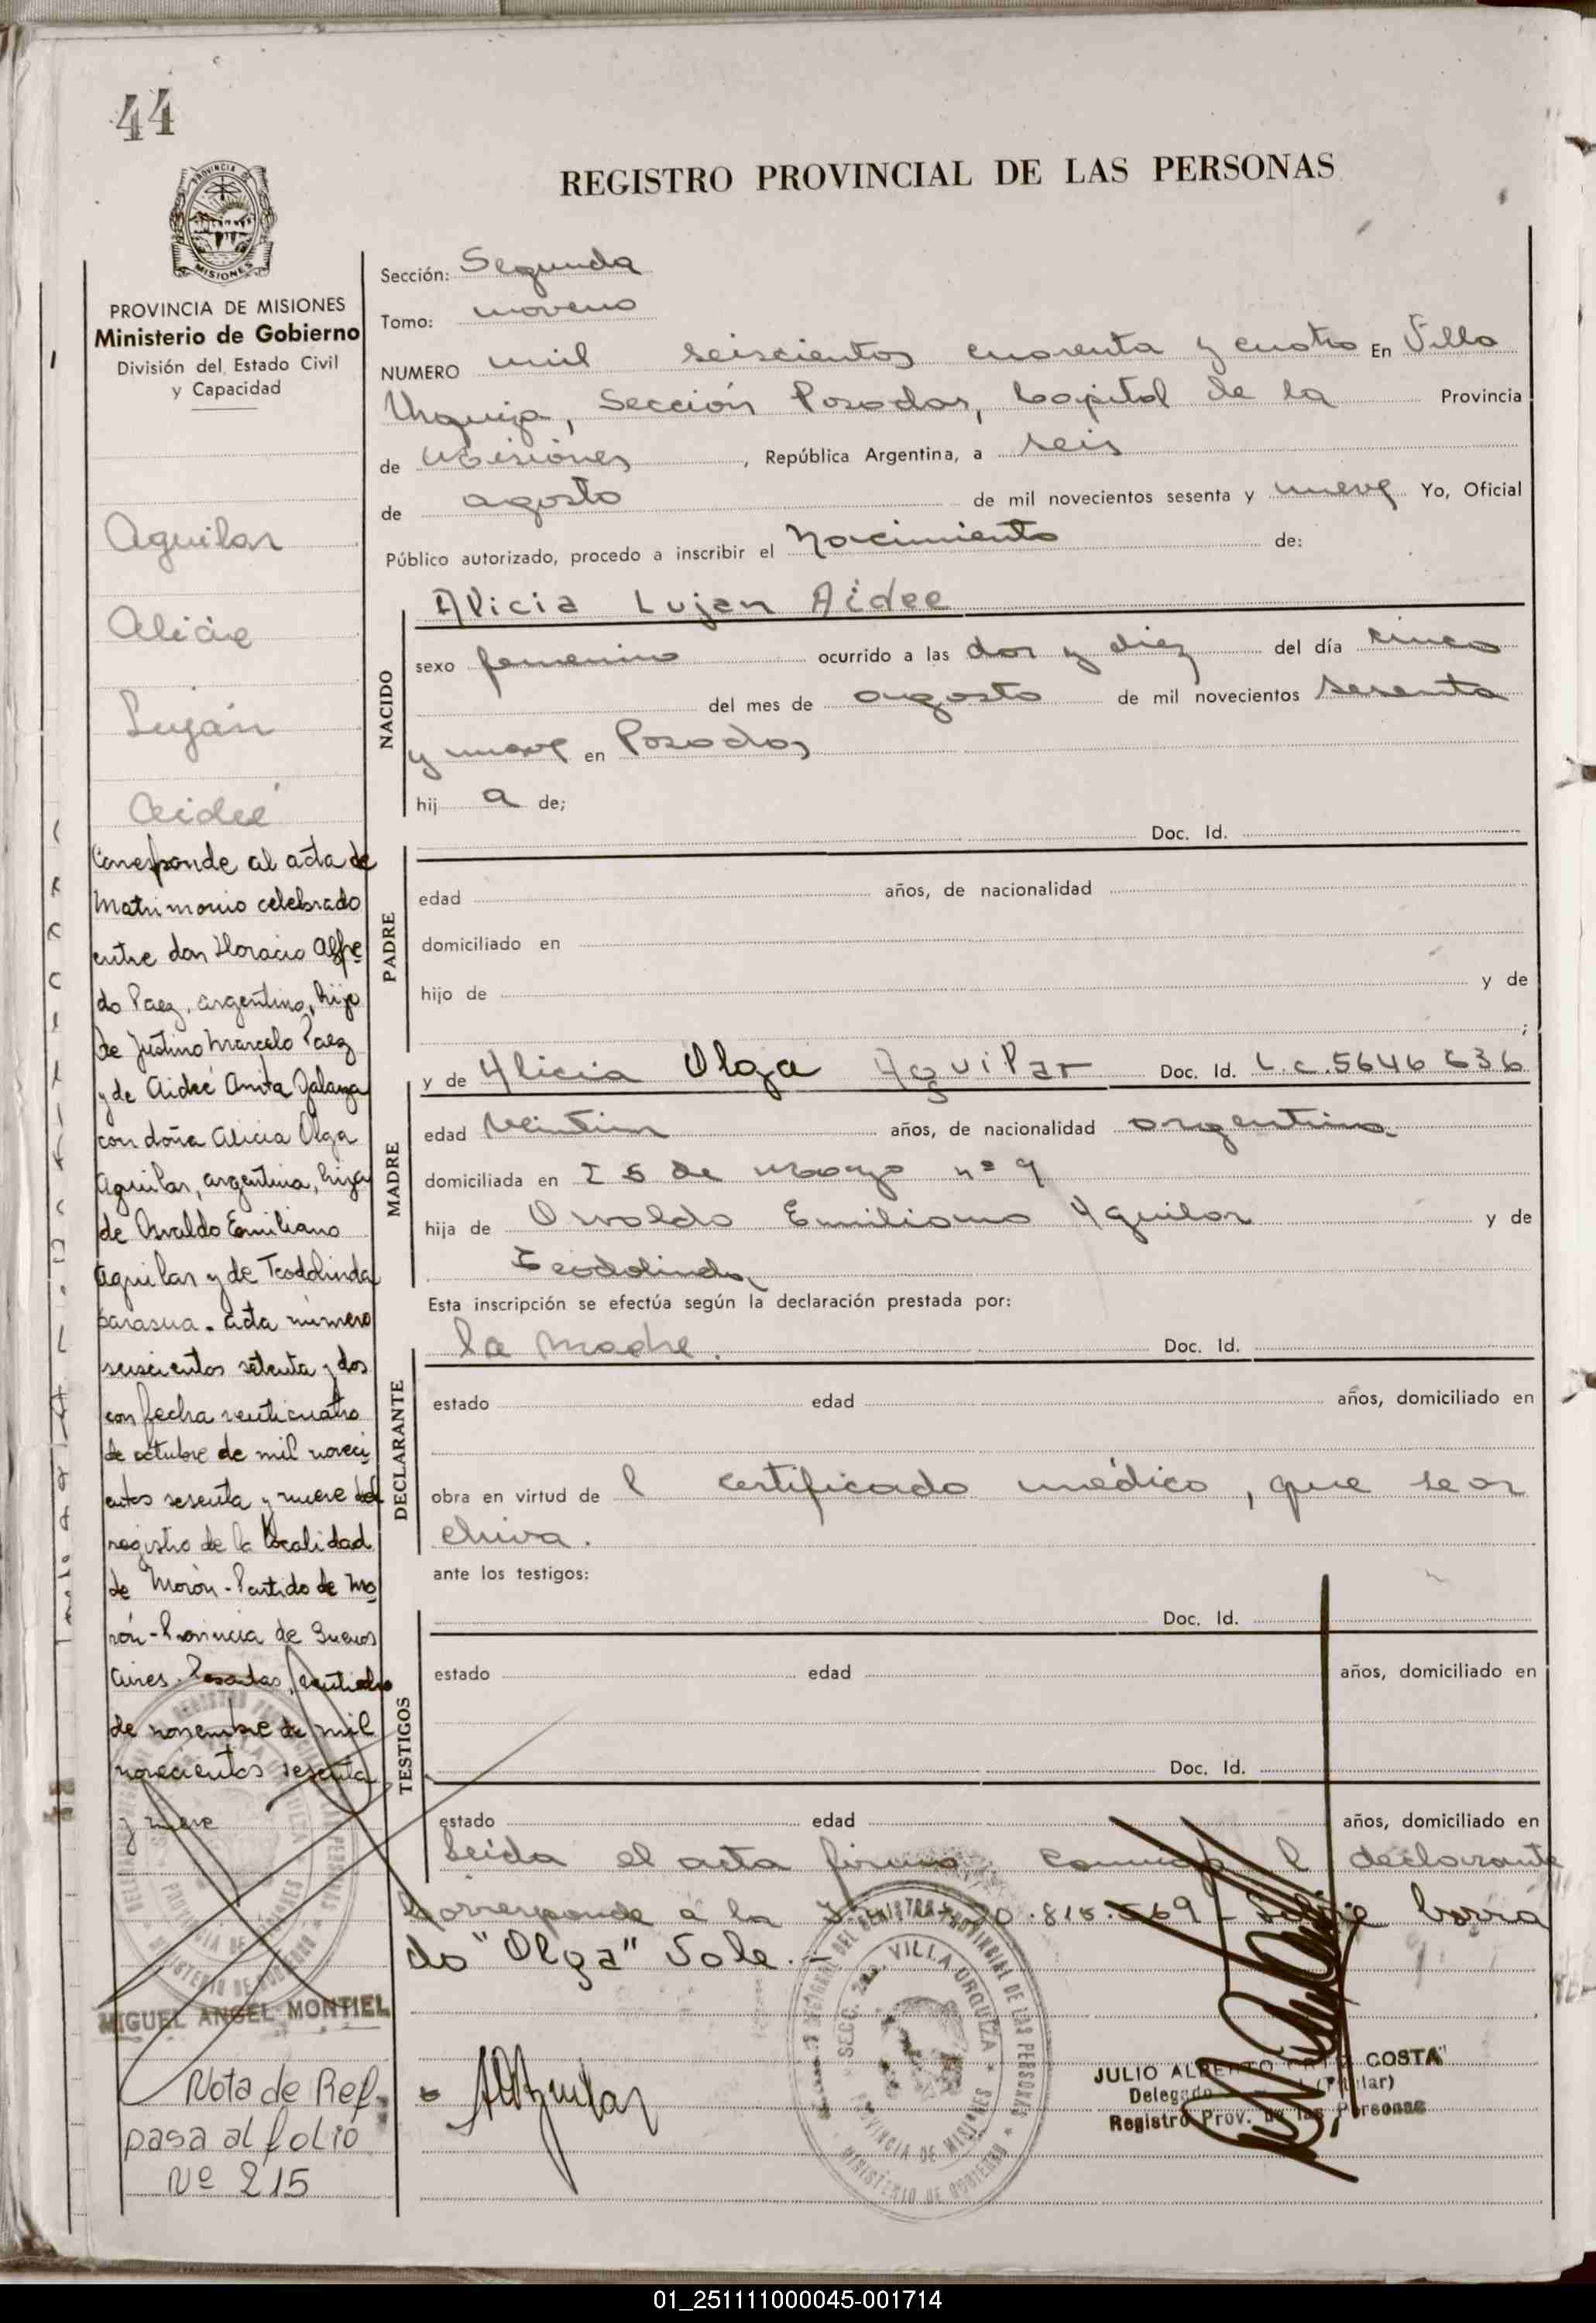 44
MISIONES
PROVINCIA DE MISIONES
Ministerio de Gobierno
División del Estado Civil
y Capacidad
Aguilar
Alicia
Luján
Aideé
Corresponde al acta de
Matrimonio celebrado
entre don Horacio Alfre
do Paez, argentino, hijo
de Justino Marcelo Paez
y de Aideé Anita Galarza
con doña Alicia Olga
Aguilar, argentina, hija
de Osvaldo Emiliano
Aguilar y de Teodolinda
acta número
seiscientos setenta y dos
con fecha veinticuatro
de octubre de mil noveci
entos sesenta y nueve del
registro de la localidad
de Morón - Partido de Mo
rón - Provincia de Buenos
Aires. Posadas,
de noviembre de mil
novecientos sesenta
y nueve
MIGUEL ANGEL MONTIEL
Nota de Ref.
pasa al folio
Nº 215
REGISTRO PROVINCIAL DE LAS PERSONAS
Sección: Segunda
Tomo: noveno
NUMERO mil seiscientos cuarenta y cuatro En Villa
Urquiza, Sección Posadas, Capital de la Provincia
de Misiones, República Argentina, a seis
de agosto de mil novecientos sesenta y nueve Yo, Oficial
Público autorizado, procedo a inscribir el Nacimiento de:
NACIDO
Alicia Lujan Aidee
sexo femenino ocurrido a las dos y diez del día cinco
del mes de agosto de mil novecientos sesenta
y nueve en Posadas
hij a de;
PADRE
Doc. Id.
edad años, de nacionalidad
domiciliado en
hijo de y de
;
MADRE
y de Alicia Olga Aguilar Doc. Id. L.C. 5646636
edad veintiun años, de nacionalidad argentina
domiciliada en 25 de Mayo nº 9
hija de Osvaldo Emiliano Aguilar y de
Teodolinda
Esta inscripción se efectúa según la declaración prestada por:
DECLARANTE
la madre. Doc. Id.
estado edad años, domiciliado en
obra en virtud de l certificado médico, que se ar
chiva.
ante los testigos:
TESTIGOS
Doc. Id.
estado edad años, domiciliado en
Doc. Id.
estado edad años, domiciliado en
Leída el acta firma conmigo l declarante
Corresponde a la 20.815.569 - Sobre borra
do "Olga" Vale. -
DELEGACION DEL REGISTRO PROVINCIAL DE LAS PERSONAS
SECC. 2da. VILLA URQUIZA
PROVINCIA DE MISIONES
MINISTERIO DE GOBIERNO
JULIO ALBERTO COSTA
Delegado (Titular)
Registro Prov. de las Personas
01_251111000045-001714